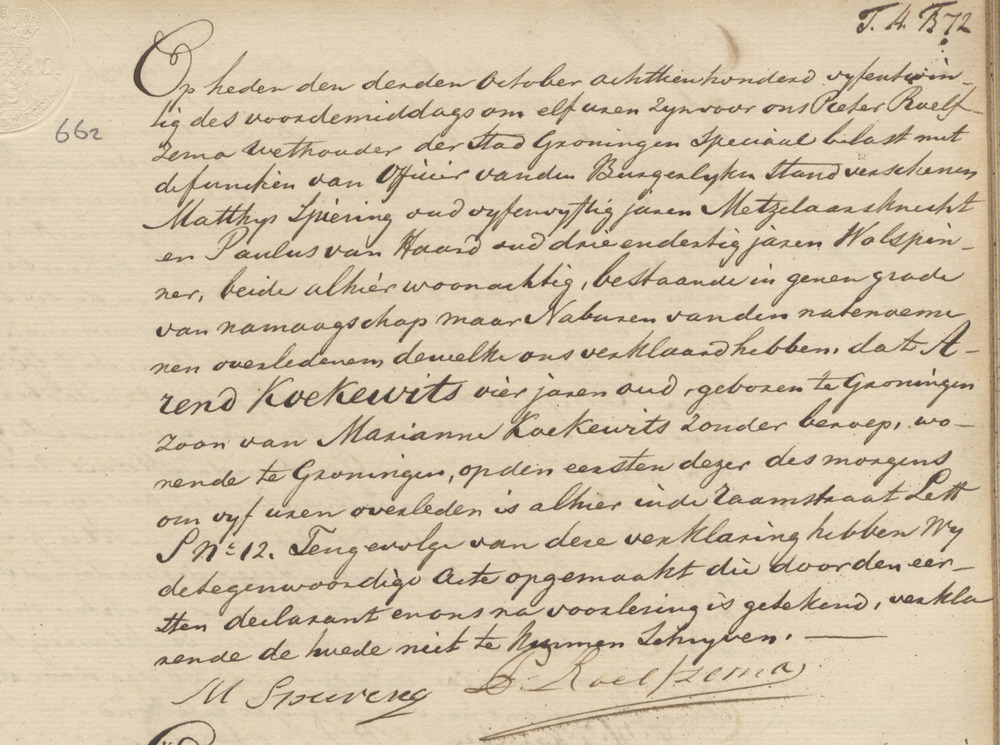 T. A. B 72
662
Op heden den derden October achttienhonderd vyfentwin-
tig des voordemiddags om elf uren zyn voor ons Pieter Roelf
zema Wethouder der Stad Groningen Speciaal belast met
de functien van Officier van den Burgerlyken Stand verschenen
Matthys Spiering oud vyfenvyftig jaren Metzelaarsknecht
en Paulus van Haard oud drieendertig jaren Wolspin-
ner, beide alhier woonachtig, bestaande in genen grade
van namaagschap maar Naburen van den natenoeme
nen overledenen, dewelke ons verklaard hebben, dat A-
rend Koekewits vier jaren oud, geboren te Groningen
zoon van Marianne Koekewits zonder beroep, wo-
nende te Groningen, op den eersten dezer des morgens
om vyf uren overleden is alhier in de Raamstraat Lett
S No 12. Tengevolge van deze verklaring hebben Wy
de tegenwoordige Acte opgemaakt die door den eer-
sten declarant en ons na voorlezing is getekend, verkla
rende de twede niet te kunnen Schryven.
M Spiering P. Roelfzema